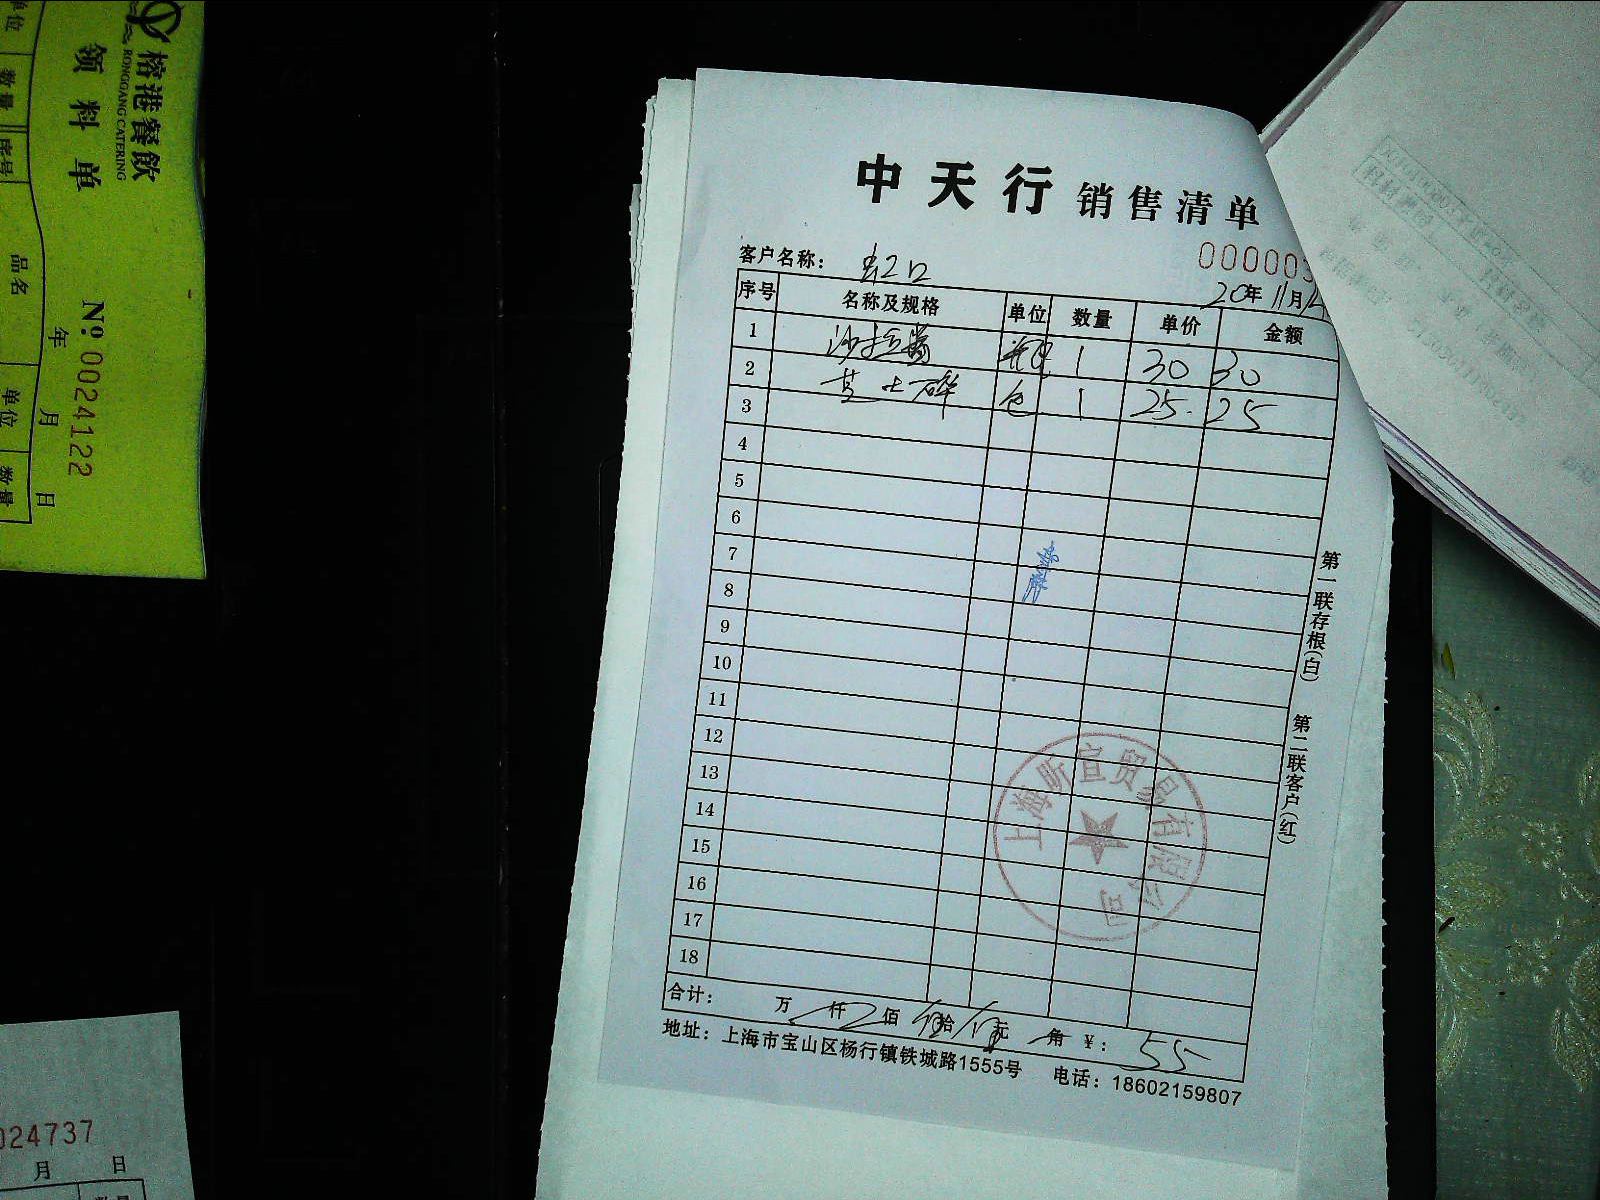 中天行 销售清单
000003
客户名称： 虹口
20年11月
序号 名称及规格 单位 数量 单价 金额
1 沙拉酱 瓶 1 30 30
2 芝士碎 包 1 25 25
3
4
5
6
7
8
9
10
11
12
13
14
15
16
17
18
合计： 万 仟 佰 伍拾 伍元 角 ¥： 55
地址：上海市宝山区杨行镇铁城路1555号 电话：18602159807
第一联存根(白) 第二联客户(红)
上海昕宜贸易有限公司
榕港餐飲
RONGGANG CATERING
领料单
№ 0024122
年 月 日
单位 数量 序号 品名 单位 数量
024737
月 日
数量